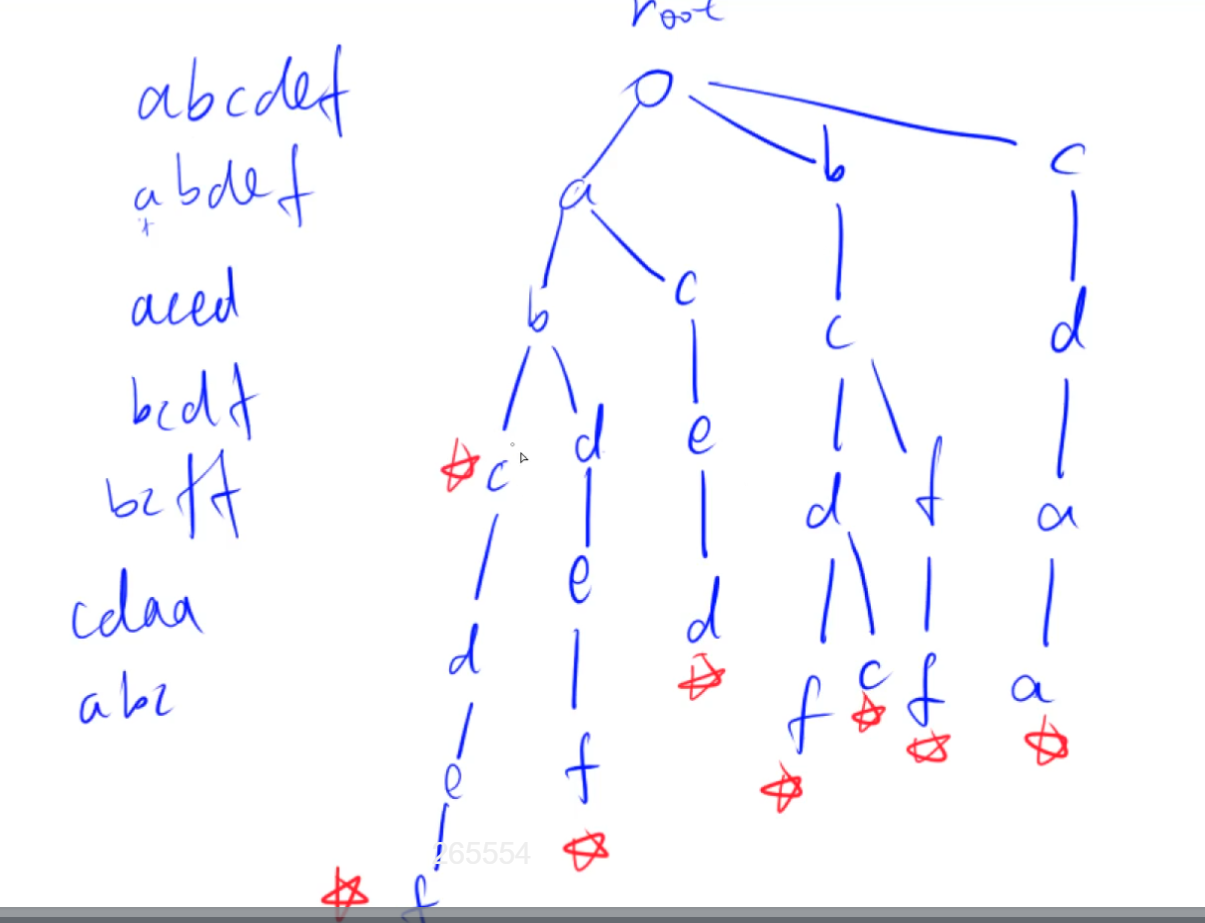 root
abcdef
abdef
aced
bcdf
bcff
cdaa
abc
a
b
c
b
c
c
d
c
d
e
d
f
a
d
e
e
d
f
c
f
a
f
f
265554